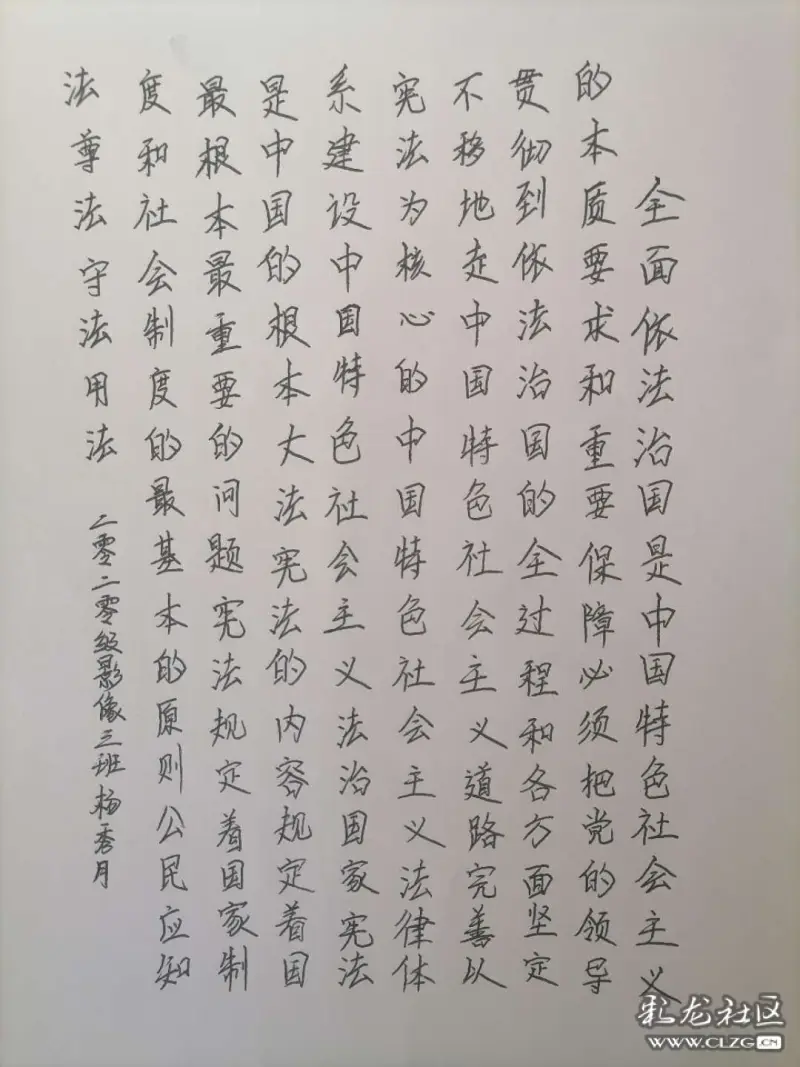 全面依法治国是中国特色社会主义
的本质要求和重要保障必须把党的领导
贯彻到依法治国的全过程和各方面坚定
不移地走中国特色社会主义道路完善以
宪法为核心的中国特色社会主义法律体
系建设中国特色社会主义法治国家宪法
是中国的根本大法宪法的内容规定着国
最根本最重要的问题宪法规定着国家制
度和社会制度的最基本的原则公民应知
法尊法守法用法
二零二零级影像三班杨秀月
彩龙社区
WWW.CLZG.CN